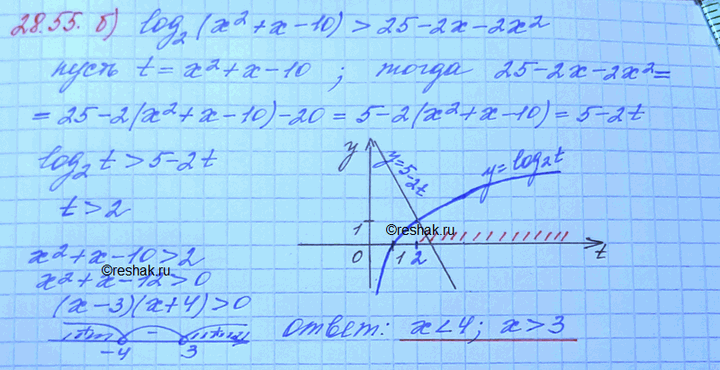 28.55. б) log₂(x²+x−10) > 25−2x−2x²
пусть t = x²+x−10 ; тогда 25−2x−2x² =
= 25−2(x²+x−10)−20 = 5−2(x²+x−10) = 5−2t
log₂t > 5−2t
t > 2
x²+x−10 > 2
x²+x−12 > 0
(x−3)(x+4) > 0
− 
−4 3
y
y=5−2t
y=log₂t
1
0 1 2 t
©reshak.ru
©reshak.ru
ответ: x<4; x>3